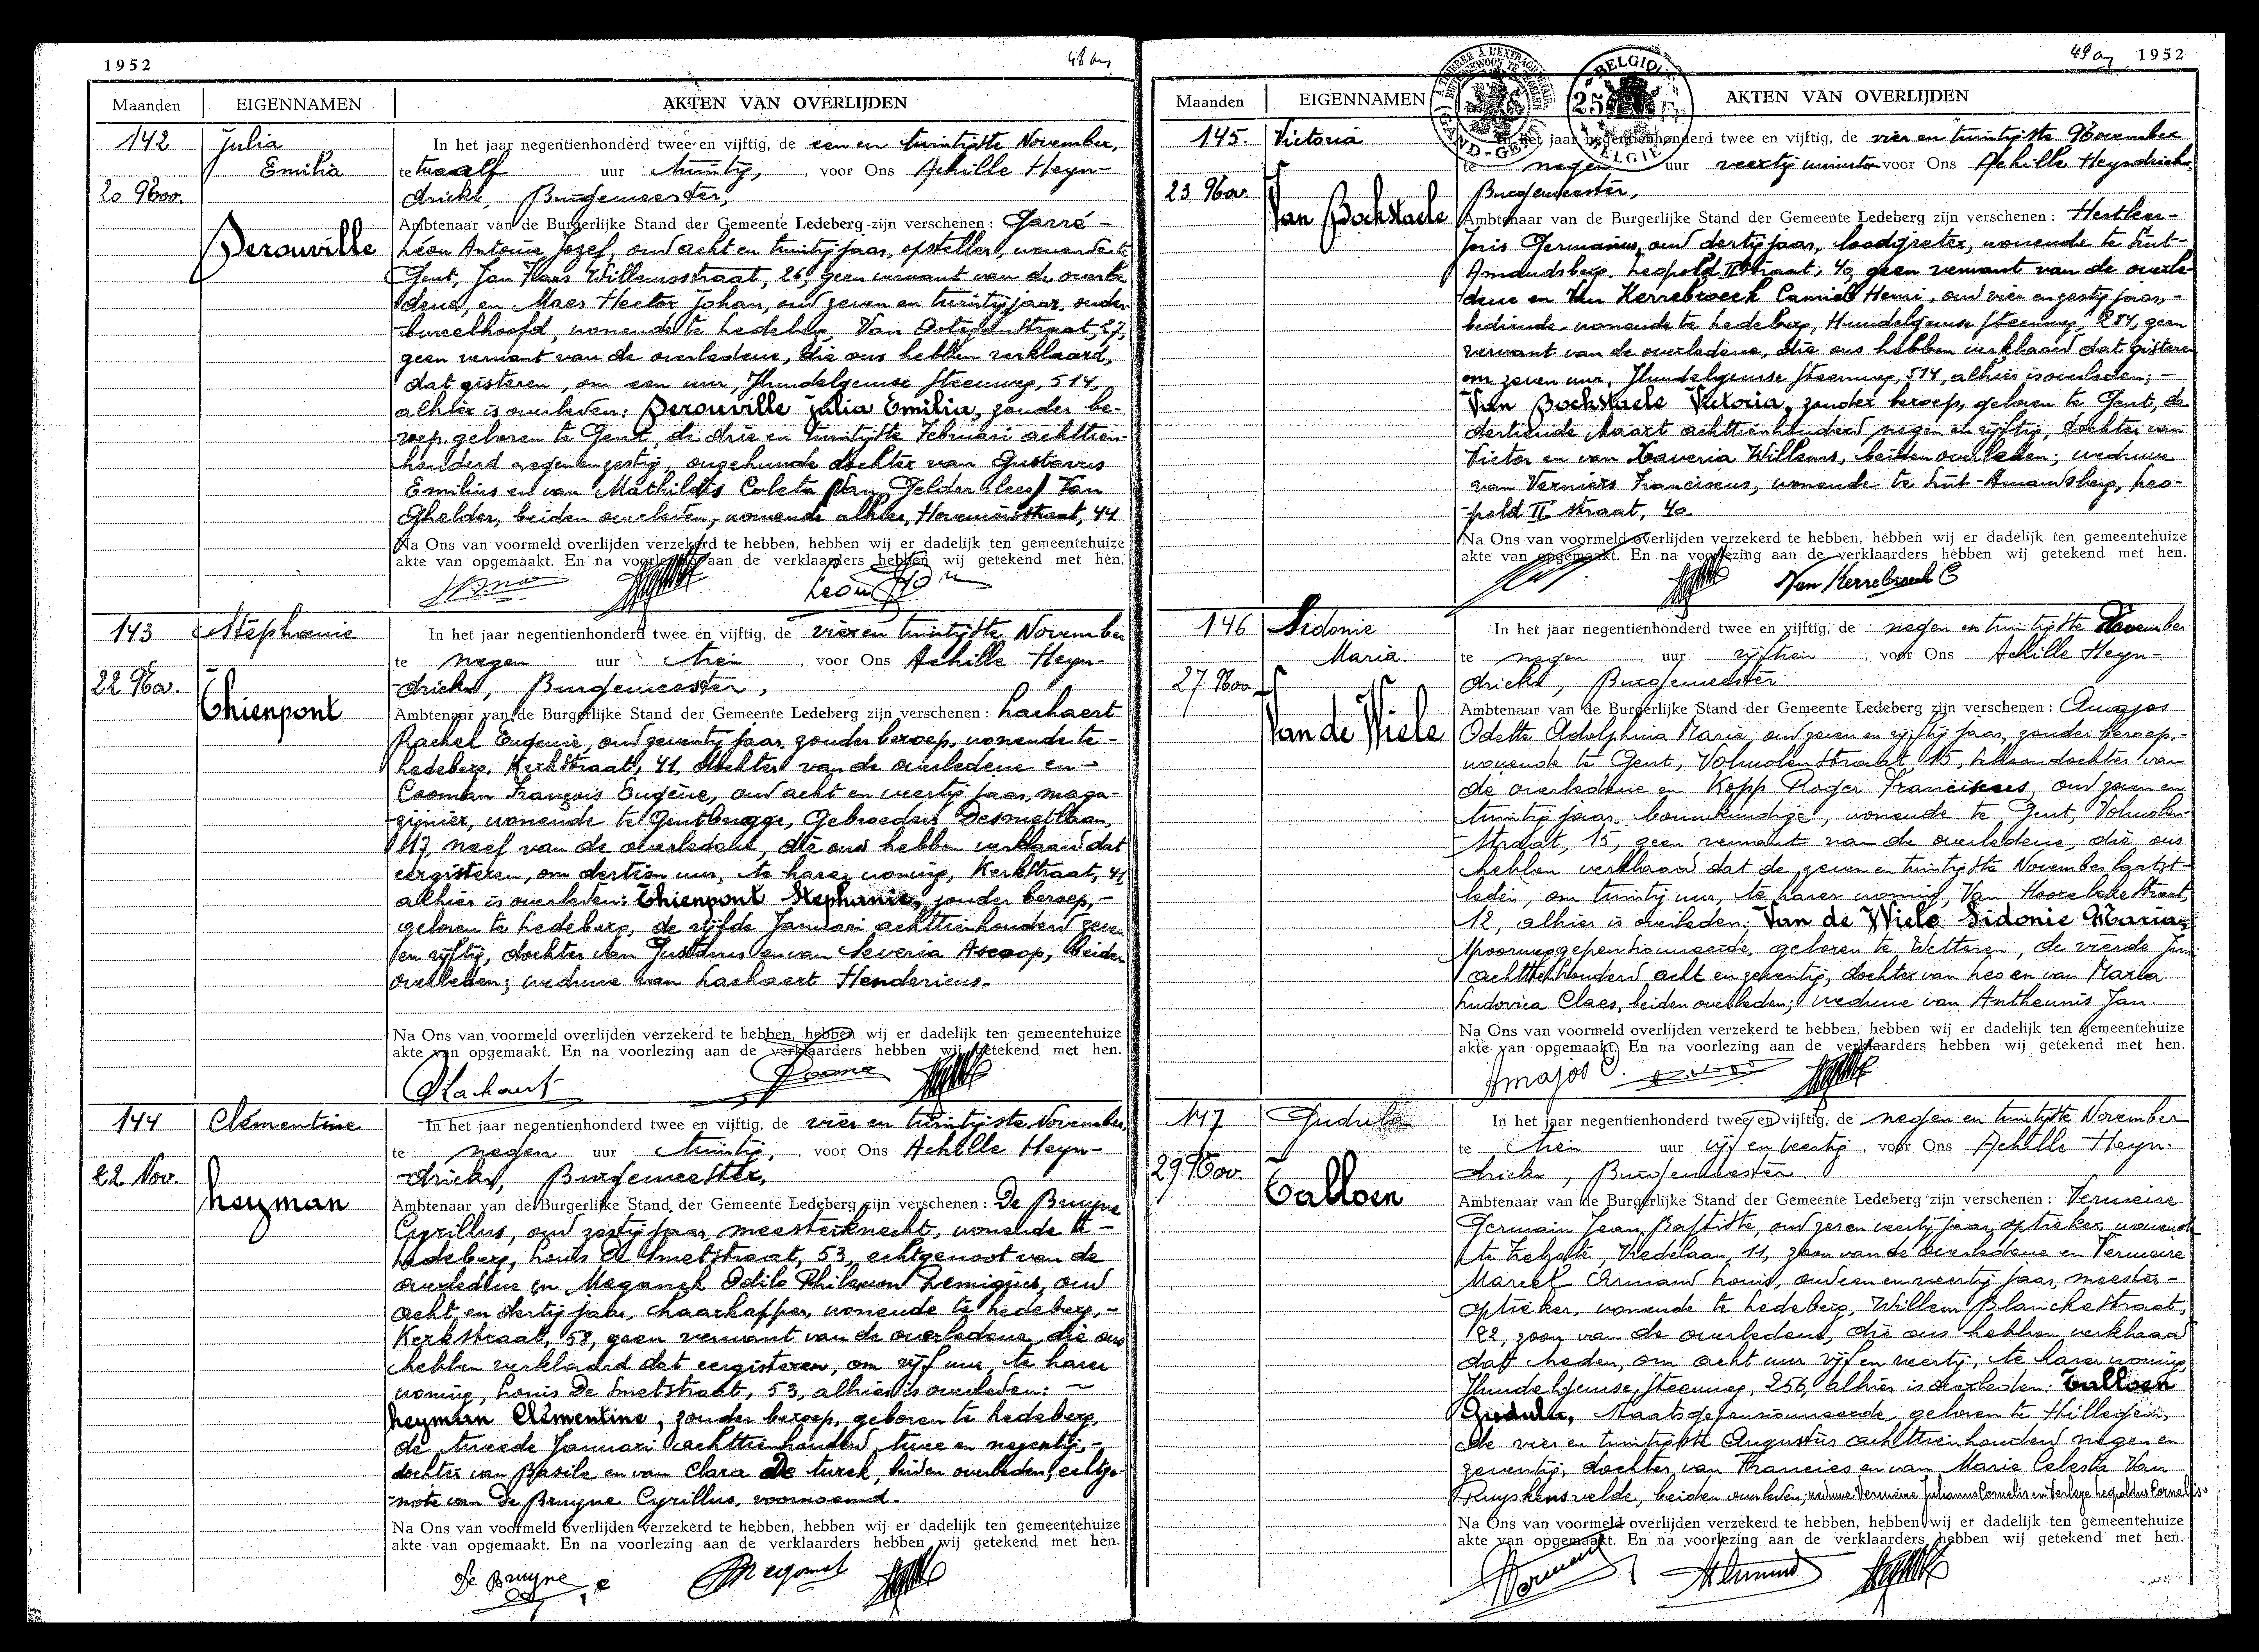 1952
48
Maanden
EIGENNAMEN
AKTEN VAN OVERLIJDEN
142
Julia
Emilia
20 Nov.
Derouville
In het jaar negentienhonderd twee en vijftig, de een en twintigste November,
te twaalf uur twintig, voor Ons Achille Heyn-
drickx, Burgemeester,
Ambtenaar van de Burgerlijke Stand der Gemeente Ledeberg zijn verschenen: Garré-
Léon Antoine Jozef, oud acht en twintig jaar, opsteller, wonende te
Gent, Jan Frans Willemsstraat, 26, geen verwant van de overle-
dene, en Maes Hector Johan, oud zeven en twintig jaar, onder-
bureelhoofd, wonende te Ledeberg, Van straat, 27,
geen verwant van de overledene, die ons hebben verklaard,
dat gisteren, om een uur, Hundelgemse steenweg, 514,
alhier is overleden: Derouville Julia Emilia, zonder be-
roep, geboren te Gent, de drie en twintigste Februari achttien-
honderd negen en zestig, ongehuwde dochter van Gustavus
Emilius en van Mathildis Coleta (Van Gelder lees) Van
Ghelder, beiden overleden, wonende alhier, Hoveniersstraat, 44
Na Ons van voormeld overlijden verzekerd te hebben, hebben wij er dadelijk ten gemeentehuize
akte van opgemaakt. En na voorlezing aan de verklaarders hebben wij getekend met hen.
143
Stéphanie
22 Nov.
Thienpont
In het jaar negentienhonderd twee en vijftig, de vier en twintigste November
te negen uur tien, voor Ons Achille Heyn-
drickx, Burgemeester,
Ambtenaar van de Burgerlijke Stand der Gemeente Ledeberg zijn verschenen: Lachaert
Rachel Eugenie, oud zeventig jaar, zonder beroep, wonende te -
Ledeberg, Kerkstraat, 41, dochter van de overledene en -
Cooman François Eugène, oud acht en veertig jaar, maga-
zijnier, wonende te Gentbrugge, Gebroeders Desmetlaan,
117, neef van de overledene, die ons hebben verklaard dat
eergisteren, om dertien uur, te harer woning, Kerkstraat, 41
alhier is overleden: Thienpont Stephanie, zonder beroep, -
geboren te Ledeberg, de vijfde Januari achttienhonderd zeven
en vijftig, dochter van Gustavus en van Severia Ascoop, beiden
overleden; weduwe van Lachaert Hendericus.
Na Ons van voormeld overlijden verzekerd te hebben, hebben wij er dadelijk ten gemeentehuize
akte van opgemaakt. En na voorlezing aan de verklaarders hebben wij getekend met hen.
144
Clémentine
22 Nov.
Heyman
In het jaar negentienhonderd twee en vijftig, de vier en twintigste November,
te negen uur twintig, voor Ons Achille Heyn-
drickx, Burgemeester,
Ambtenaar van de Burgerlijke Stand der Gemeente Ledeberg zijn verschenen: De Bruyne
Cyrillus, oud zestig jaar, meesterknecht, wonende te -
Ledeberg, Louis De Smetstraat, 53, echtgenoot van de
overledene en Meganck Odilo Philemon Remigius, oud
acht en dertig jaar, haarkapper, wonende te Ledeberg, -
Kerkstraat, 58, geen verwant van de overledene, die ons
hebben verklaard dat eergisteren, om vijf uur, te harer
woning, Louis De Smetstraat, 53, alhier is overleden: -
Heyman Clémentine, zonder beroep, geboren te Ledeberg,
de tweede Januari achttienhonderd twee en negentig, -
dochter van Basile en van Clara De turck, beiden overleden, echtge-
note van De Bruyne Cyrillus, voornoemd.
Na Ons van voormeld overlijden verzekerd te hebben, hebben wij er dadelijk ten gemeentehuize
akte van opgemaakt. En na voorlezing aan de verklaarders hebben wij getekend met hen.
De Bruyne
49
1952
BELGIQUE
25 Fr
BELGIË
GAND-GENT
Maanden
EIGENNAMEN
AKTEN VAN OVERLIJDEN
145.
Victoria
23 Nov.
Van Bockstaele
In het jaar negentienhonderd twee en vijftig, de vier en twintigste November
te negen uur veertig minuten voor Ons Achille Heyndrickx,
Burgemeester,
Ambtenaar van de Burgerlijke Stand der Gemeente Ledeberg zijn verschenen: Hertleer-
Joris Germanus, oud dertig jaar, loodgieter, wonende te Sint-
Amandsberg, Leopold II straat, 40, geen verwant van de overle-
dene en Van Kerrebroeck Camiel Henri, oud vier en zestig jaar, -
bediende, wonende te Ledeberg, Hundelgemse steenweg, 284, geen
verwant van de overledene, die ons hebben verklaard dat gisteren
om zeven uur, Hundelgemse steenweg, 514, alhier is overleden; -
Van Bockstaele Victoria, zonder beroep, geboren te Gent, de
dertiende Maart achttienhonderd negen en vijftig, dochter van
Victor en van Xaveria Willems, beiden overleden; weduwe
van Verniers Franciscus, wonende te Sint-Amandsberg, Leo-
pold II straat, 40.
Na Ons van voormeld overlijden verzekerd te hebben, hebben wij er dadelijk ten gemeentehuize
akte van opgemaakt. En na voorlezing aan de verklaarders hebben wij getekend met hen.
Van Kerrebroeck C
146
Sidonie
Maria
27 Nov.
Van de Wiele
In het jaar negentienhonderd twee en vijftig, de negen en twintigste November
te negen uur vijftien, voor Ons Achille Heyn-
drickx, Burgemeester.
Ambtenaar van de Burgerlijke Stand der Gemeente Ledeberg zijn verschenen: Amajos
Odette Adolphina Maria, oud zeven en vijftig jaar, zonder beroep, -
wonende te Gent, Volmolenstraat, 15, schoondochter van
de overledene en Kepp Roger Franciscus, oud zeven en
twintig jaar, bouwkundige, wonende te Gent, Volmolen-
straat, 15, geen verwant van de overledene, die ons
hebben verklaard dat de zeven en twintigste November laatst-
leden, om twintig uur, te harer woning, Van Hoorebeke straat,
12, alhier is overleden: Van de Wiele Sidonie Maria,
spoorweggepensioneerde, geboren te Wetteren, de vierde Juni
achttienhonderd acht en zeventig, dochter van Leo en van Maria
Ludovica Claes, beiden overleden; weduwe van Antheunis Jan.
Na Ons van voormeld overlijden verzekerd te hebben, hebben wij er dadelijk ten gemeentehuize
akte van opgemaakt. En na voorlezing aan de verklaarders hebben wij getekend met hen.
Amajos O.
147
Gudula
29 Nov.
Talloen
In het jaar negentienhonderd twee en vijftig, de negen en twintigste November
te tien uur vijf en veertig, voor Ons Achille Heyn-
drickx, Burgemeester.
Ambtenaar van de Burgerlijke Stand der Gemeente Ledeberg zijn verschenen: Vermeire
Germain Jean Baptiste, oud zeven veertig jaar, optieker, wonende
te Zelzate, Vredelaan, 11, zoon van de overledene en Vermeire
Marcel Armand Louis, oud een en veertig jaar, meester-
optieker, wonende te Ledeberg, Willem Blanckestraat,
22, zoon van de overledene, die ons hebben verklaard
dat heden, om acht uur vijf en veertig, te harer woning,
Hundelgemse steenweg, 256, alhier is overleden: Talloen
Gudula, Staatsgepensionneerde, geboren te Hillegem,
de vier en twintigste Augustus achttienhonderd negen en
zeventig, dochter van Francies en van Marie Celesta Van
Ruyskensvelde, beiden overleden; weduwe Vermeire Julianus Cornelis en Verleye Leopoldus Cornelis.
Na Ons van voormeld overlijden verzekerd te hebben, hebben wij er dadelijk ten gemeentehuize
akte van opgemaakt. En na voorlezing aan de verklaarders hebben wij getekend met hen.